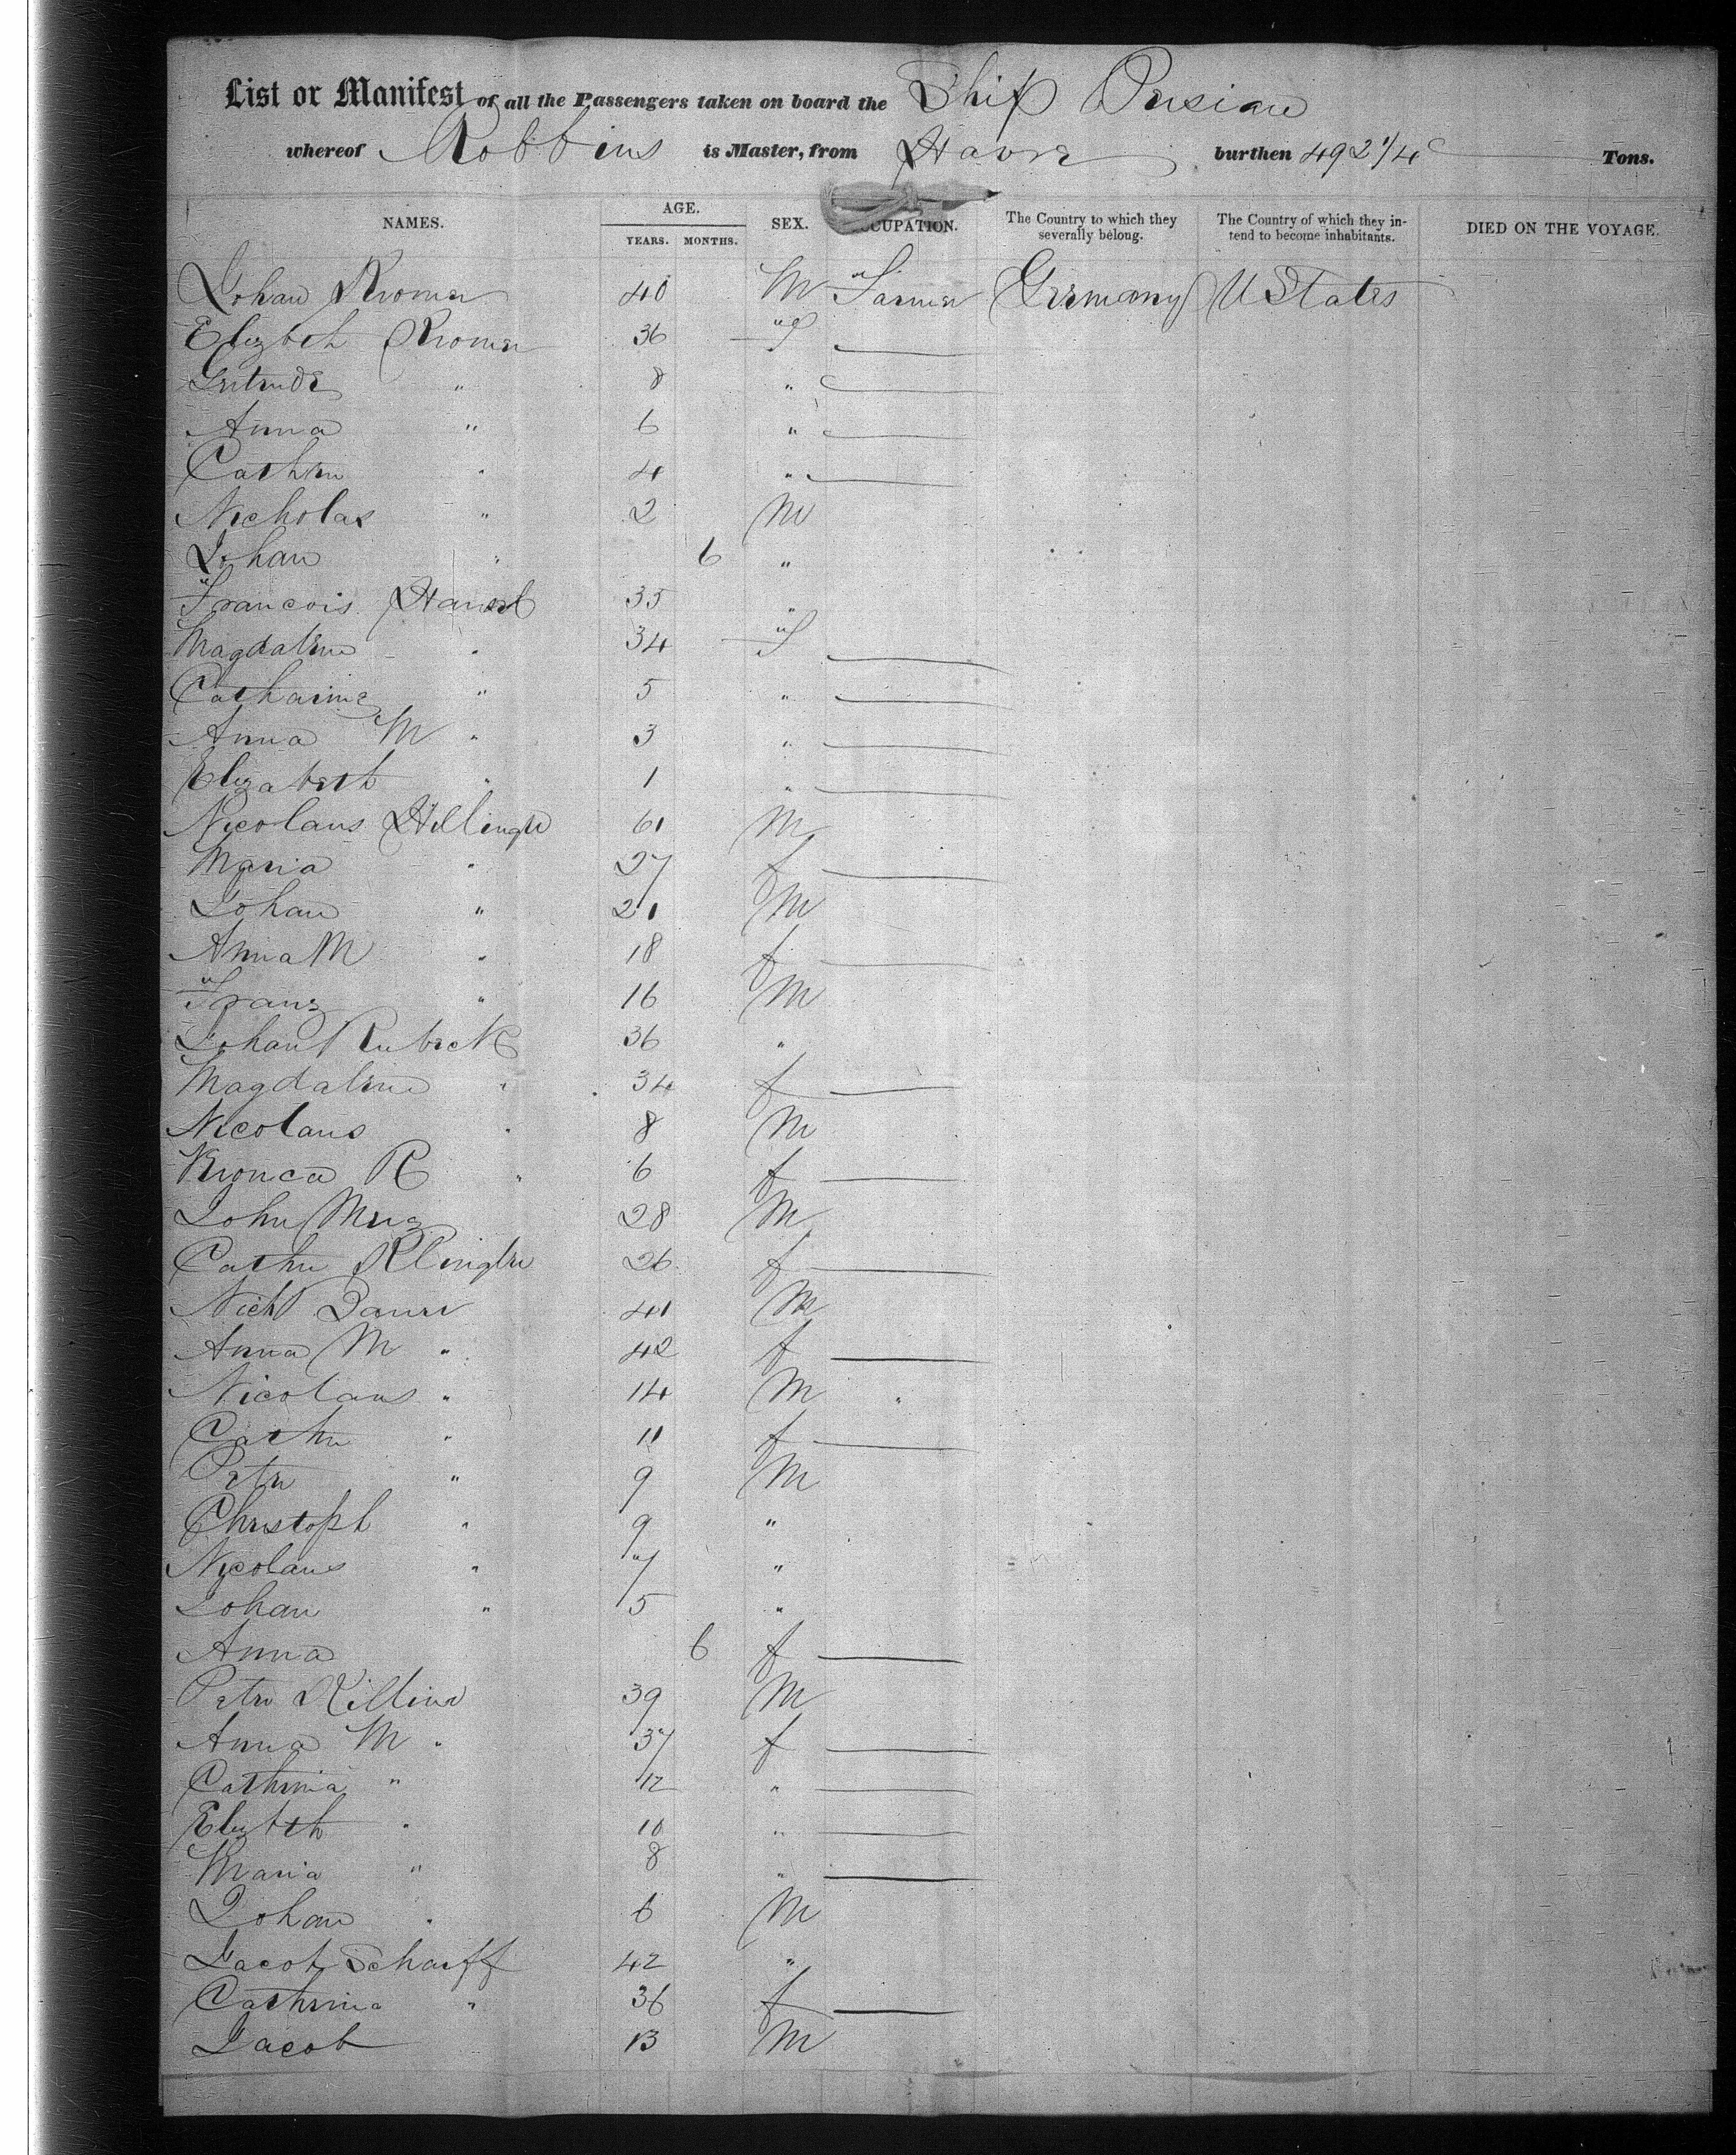 List or Manifest of all the Passengers taken on board the Ship Persian
whereof Robbins is Master, from Havre burthen 492 1/4 Tons.
NAMES. AGE. YEARS. MONTHS. SEX. OCCUPATION. The Country to which they severally belong. The Country of which they intend to become inhabitants. DIED ON THE VOYAGE.
Johan Kromer 40 M Farmer Germany U States
Elizbeth Kromer 36 F
Gertrude " 8 "
Anna " 6 "
Cathrn " 4 "
Nicholas " 2 M
Johan " 6 "
Francois 35 "
Magdalene " 34 F
Catharine " 5 "
Anna M " 3 "
Elizabeth " 1 "
Nicolaus 61 M
Maria " 27 f
Johan " 21 M
Anna M " 18 f
Franz " 16 M
Johan 36 "
Magdalene " 34 f
Nicolaus " 8 M
6 f
John 28 M
Cathn 26 f
41 M
Anna M " 42 f
Nicolaus " 14 M "
Cathn " 11 f
Peter " 9 M
Christoph " 9 "
Nicolaus " 7 "
Johan " 5 "
Anna 6 f
Peter 39 M
Anna M " 37 f
Cathrina " 12 "
Elizbth " 10 "
Maria " 8 "
Johan " 6 M
Jacob Scharff 42 "
Cathrina " 36 f
Jacob 13 M